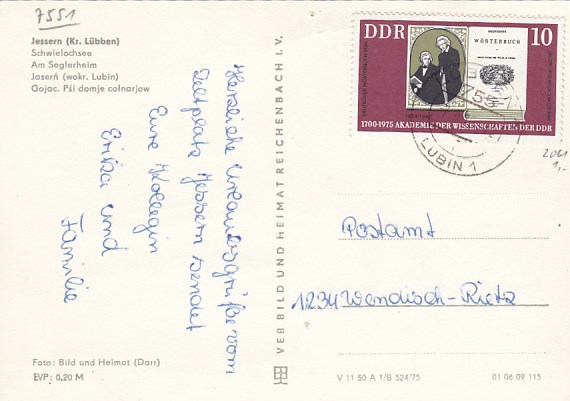 7551
Jessern (Kr. Lübben)
Schwielochsee
Am Seglerheim
Jaserń (wokr. Lubin)
Gojac. Pśi domje colnarjow
Herzliche Urlaubsgrüße vom
Zeltplatz Jessern sendet
Eure Kollegin
Erika und
Familie
Foto: Bild und Heimat (Darr)
EVP: 0,20 M
VEB BILD UND HEIMAT REICHENBACH I. V.
DDR
WÖRTERBUCH
10
1700-1975 AKADEMIE DER WISSENSCHAFTEN DER DDR
755 1
LUBIN 1
2061
1,-
Postamt
1234 Wendisch-Rietz
V 11 50 A 1/B 524/75
01 06 09 115